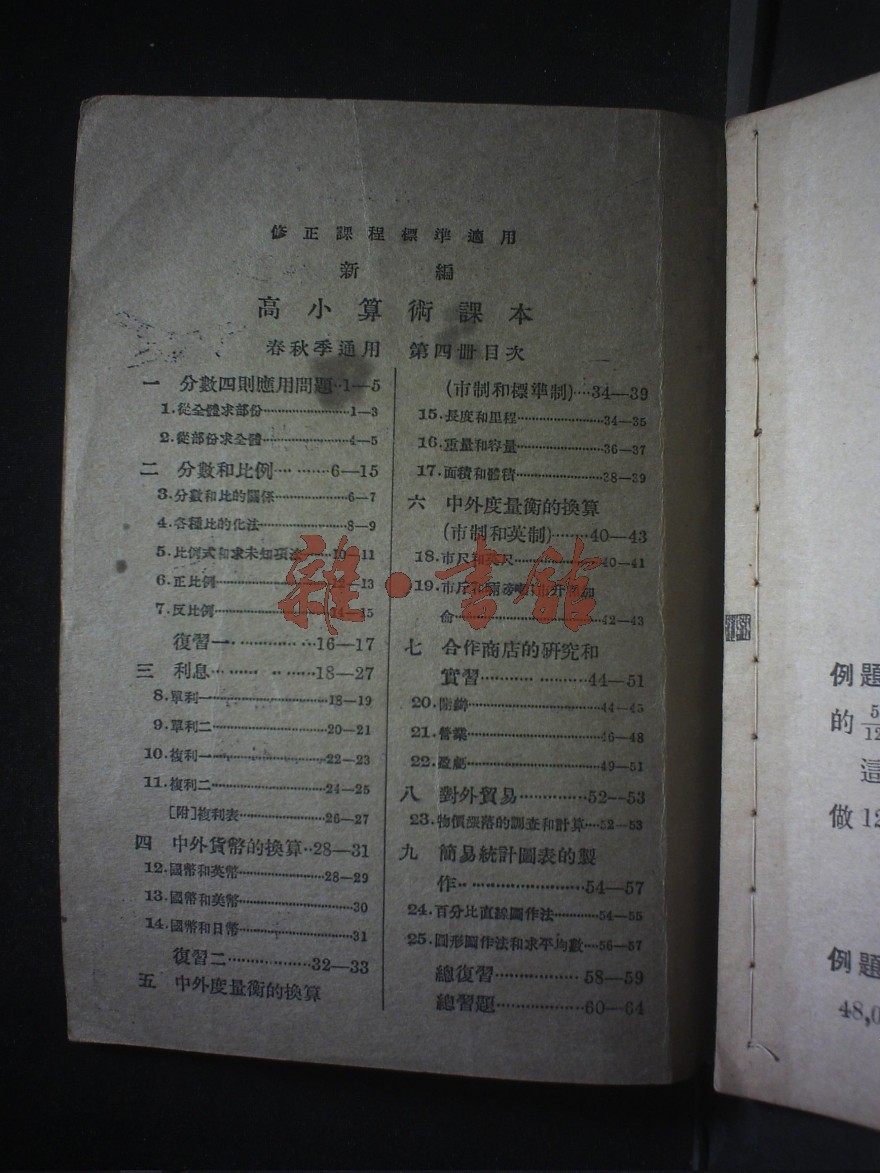 修正課程標準適用
新編
高小算術課本
春秋季通用 第四冊目次
一 分數四則應用問題··1—5
1.從全體求部份························1—3
2.從部份求全體························4—5
二 分數和比例··········6—15
3.分數和比的關係····················6—7
4.各種比的化法························8—9
5.比例式和求未知項法······10—11
6.正比例······························12—13
7.反比例······························14—15
復習一··············16—17
三 利息··············18—27
8.單利一······························18—19
9.單利二······························20—21
10.複利一····························22—23
11.複利二····························24—25
[附]複利表························26—27
四 中外貨幣的換算··28—31
12.國幣和英幣····················28—29
13.國幣和美幣····························30
14.國幣和日幣····························31
復習二··················32—33
五 中外度量衡的換算
(市制和標準制)····34—39
15.長度和里程····················34—35
16.重量和容量····················36—37
17.面積和體積····················38—39
六 中外度量衡的換算
(市制和英制)········40—43
18.市尺和英尺····················40—41
19.市斤和兩磅
侖······························42—43
七 合作商店的研究和
實習··················44—51
20.························44—45
21.營業························46—48
22.盈虧························49—51
八 對外貿易··············52—53
23.物價漲落的調查和計算····52—53
九 簡易統計圖表的製
作··················54—57
24.百分比直線圖作法··········54—55
25.圓形圖作法和求平均數····56—57
總復習················58—59
總習題················60—64
雜·書館
例題
的 5
12
這
做12
例題
48,0